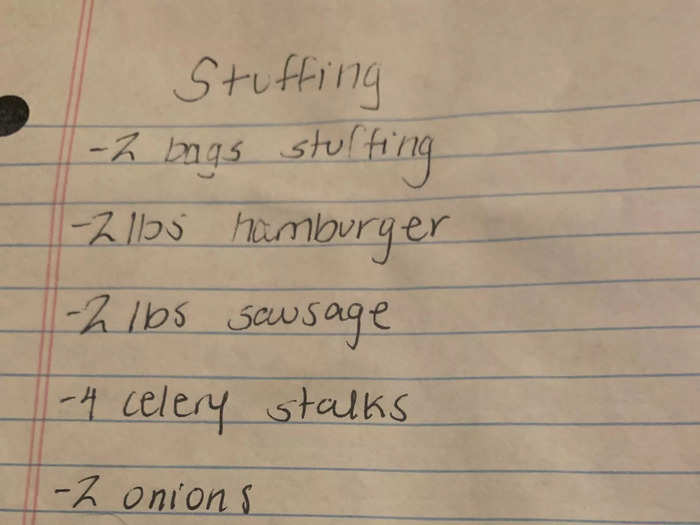 Stuffing
-2 bags stuffing
-2 lbs hamburger
-2 lbs sausage
-4 celery stalks
-2 onions